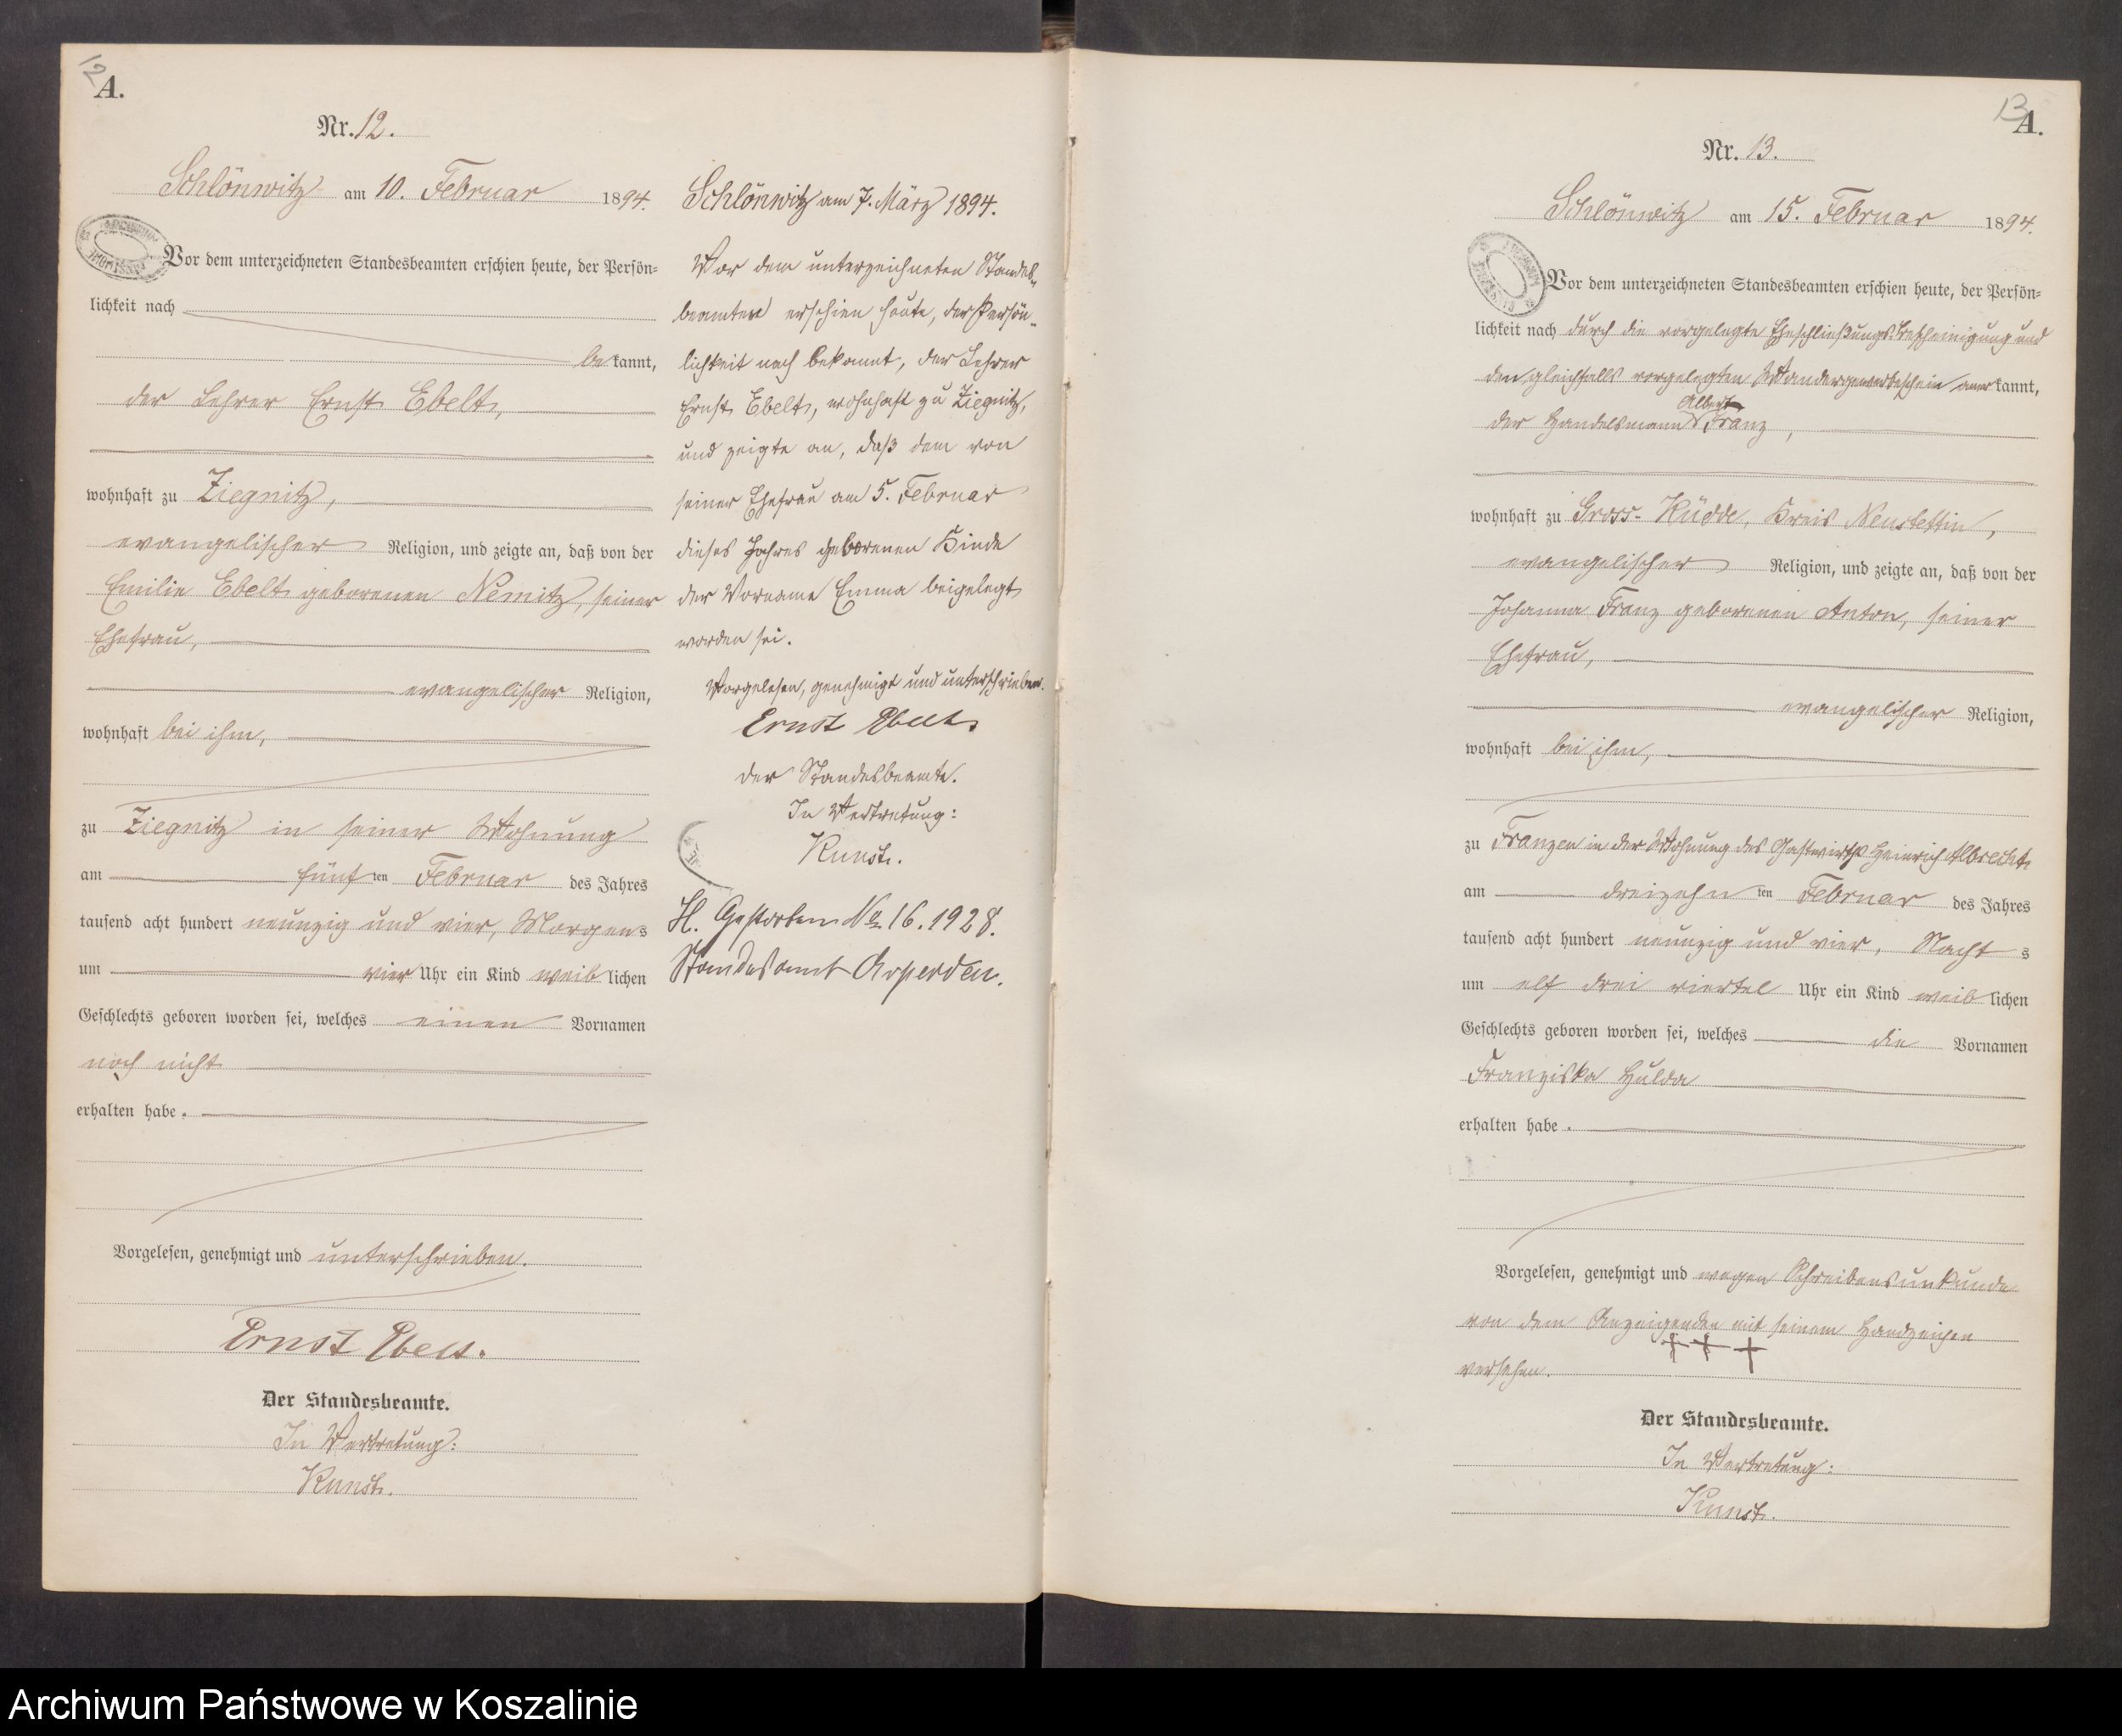 12
A.
Nr. 12.
Schlönwitz am 10. Februar 1894.
Vor dem unterzeichneten Standesbeamten erschien heute, der Persön=
lichkeit nach
be kannt,
der Lehrer Ernst Ebelt,
wohnhaft zu Ziegnitz,
evangelischer Religion, und zeigte an, daß von der
Emilie Ebelt geborenen Nemitz, seiner
Ehefrau,
evangelischer Religion,
wohnhaft bei ihm,
zu Ziegnitz in seiner Wohnung
am fünf ten Februar des Jahres
tausend acht hundert neunzig und vier, Morgens
um vier Uhr ein Kind weib lichen
Geschlechts geboren worden sei, welches einen Vornamen
noch nicht
erhalten habe.
Vorgelesen, genehmigt und unterschrieben.
Ernst Ebelt.
Der Standesbeamte.
In Vertretung:
Kunst.
Schlönwitz am 7. März 1894.
Vor dem unterzeichneten Standes-
beamten erschien heute, der Persön-
lichkeit nach bekannt, der Lehrer
Ernst Ebelt, wohnhaft zu Ziegnitz,
und zeigte an, daß dem von
seiner Ehefrau am 5. Februar
dieses Jahres geborenen Kinde
der Vorname Emma beigelegt
worden sei.
Vorgelesen, genehmigt und unterschrieben.
Ernst Ebelt
Der Standesbeamte.
In Vertretung:
Kunst.
H. Gestorben No 16. 1928.
Standesamt Asperden.
13
A.
Nr. 13.
Schlönwitz am 15. Februar 1894.
Vor dem unterzeichneten Standesbeamten erschien heute, der Persön=
lichkeit nach durch die vorgelegte Eheschließungsbescheinigung und
den gleichfalls vorgelegten Wandergewerbeschein aner kannt,
Albert
der Handelsmann Franz,
wohnhaft zu Gross-Küdde, Kreis Neustettin,
evangelischer Religion, und zeigte an, daß von der
Johanna Franz geborenen Anton, seiner
Ehefrau,
evangelischer Religion,
wohnhaft bei ihm,
zu Franzen in der Wohnung des Gastwirths Heinrich Albrecht
am dreizehn ten Februar des Jahres
tausend acht hundert neunzig und vier, Nacht s
um elf drei viertel Uhr ein Kind weib lichen
Geschlechts geboren worden sei, welches die Vornamen
Franziska Hulda
erhalten habe.
Vorgelesen, genehmigt und wegen Schreibensunkunde
von dem Anzeigenden mit seinem Handzeichen
+++
versehen.
Der Standesbeamte.
In Vertretung:
Kunst.
Archiwum Państwowe w Koszalinie